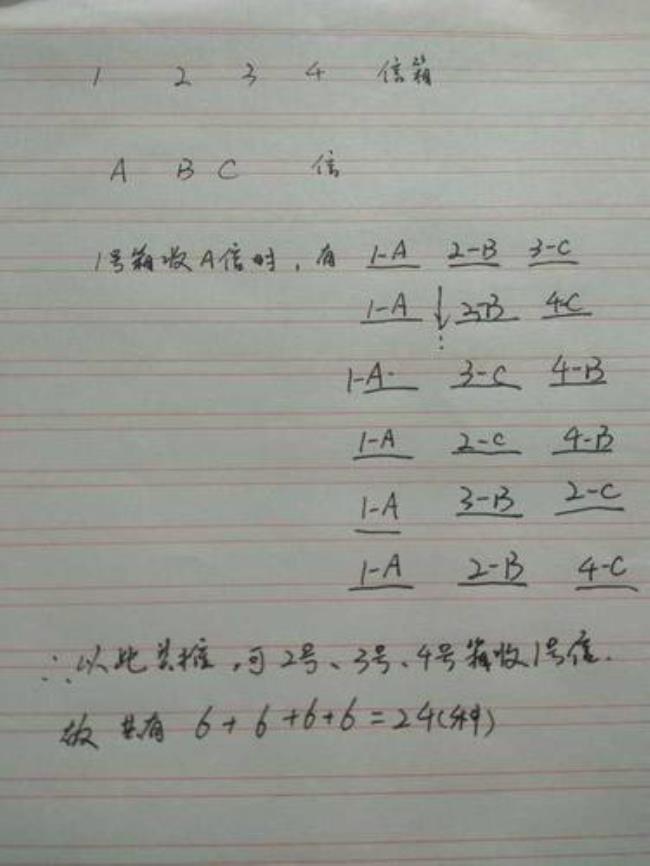 1 2 3 4 信箱
A B C 信
1号箱收A信时，有 1-A 2-B 3-C
1-A ↓ 3-B 4-C
⋮
1-A 3-C 4-B
1-A 2-C 4-B
1-A 3-B 2-C
1-A 2-B 4-C
∴以此类推，可2号、3号、4号箱收1号信.
故 共有 6+6+6+6=24(种)